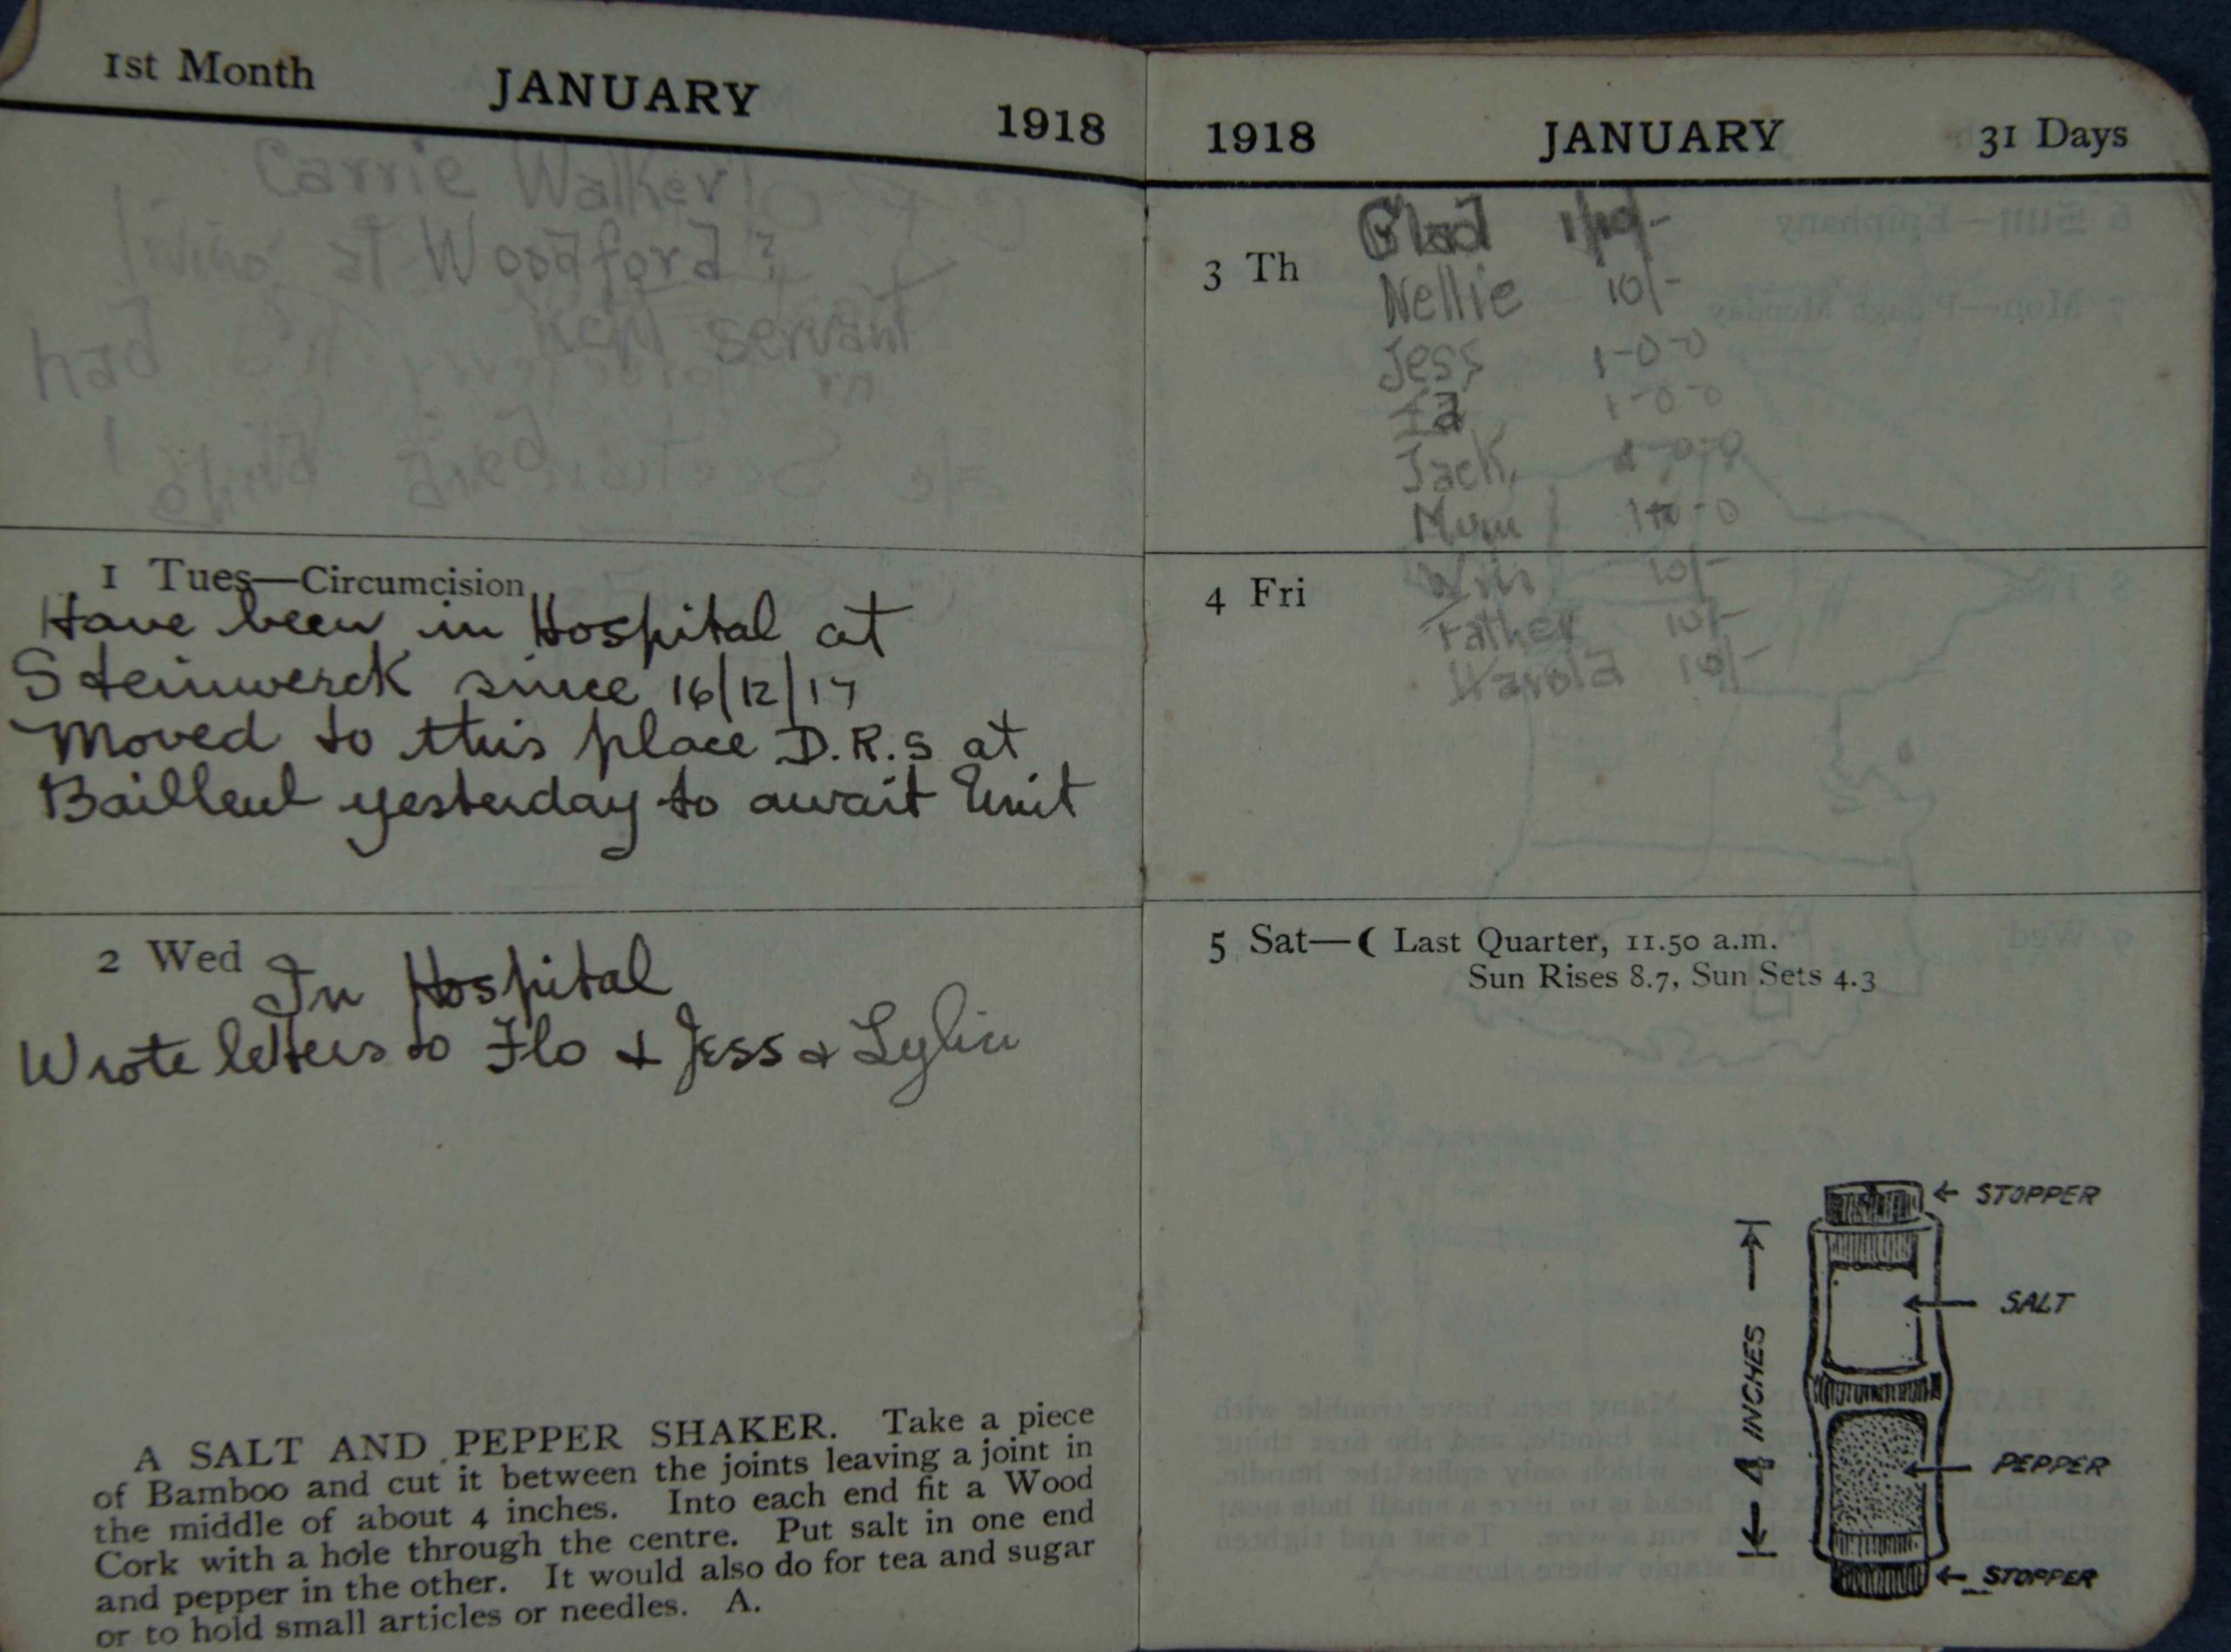 1st Month JANUARY 1918
Carrie Walker
at Woodford
Kept servant
had
1 Tues—Circumcision
Have been in Hospital at
Steinwerck since 16/12/17
Moved to this place D.R.S at
Bailleul yesterday to await Unit
2 Wed
In Hospital
Wrote letters to Flo & Jess & Lylie
A SALT AND PEPPER SHAKER. Take a piece
of Bamboo and cut it between the joints leaving a joint in
the middle of about 4 inches. Into each end fit a Wood
Cork with a hole through the centre. Put salt in one end
and pepper in the other. It would also do for tea and sugar
or to hold small articles or needles. A.
1918 JANUARY 31 Days
Glad 1/10/-
3 Th
Nellie 10/-
Jess 1-0-0
1-0-0
Jack
Mum
4 Fri
Win 10/-
Father 10/-
Harold 10/-
5 Sat—☾ Last Quarter, 11.50 a.m.
Sun Rises 8.7, Sun Sets 4.3
← STOPPER
SALT
4 INCHES
PEPPER
← STOPPER